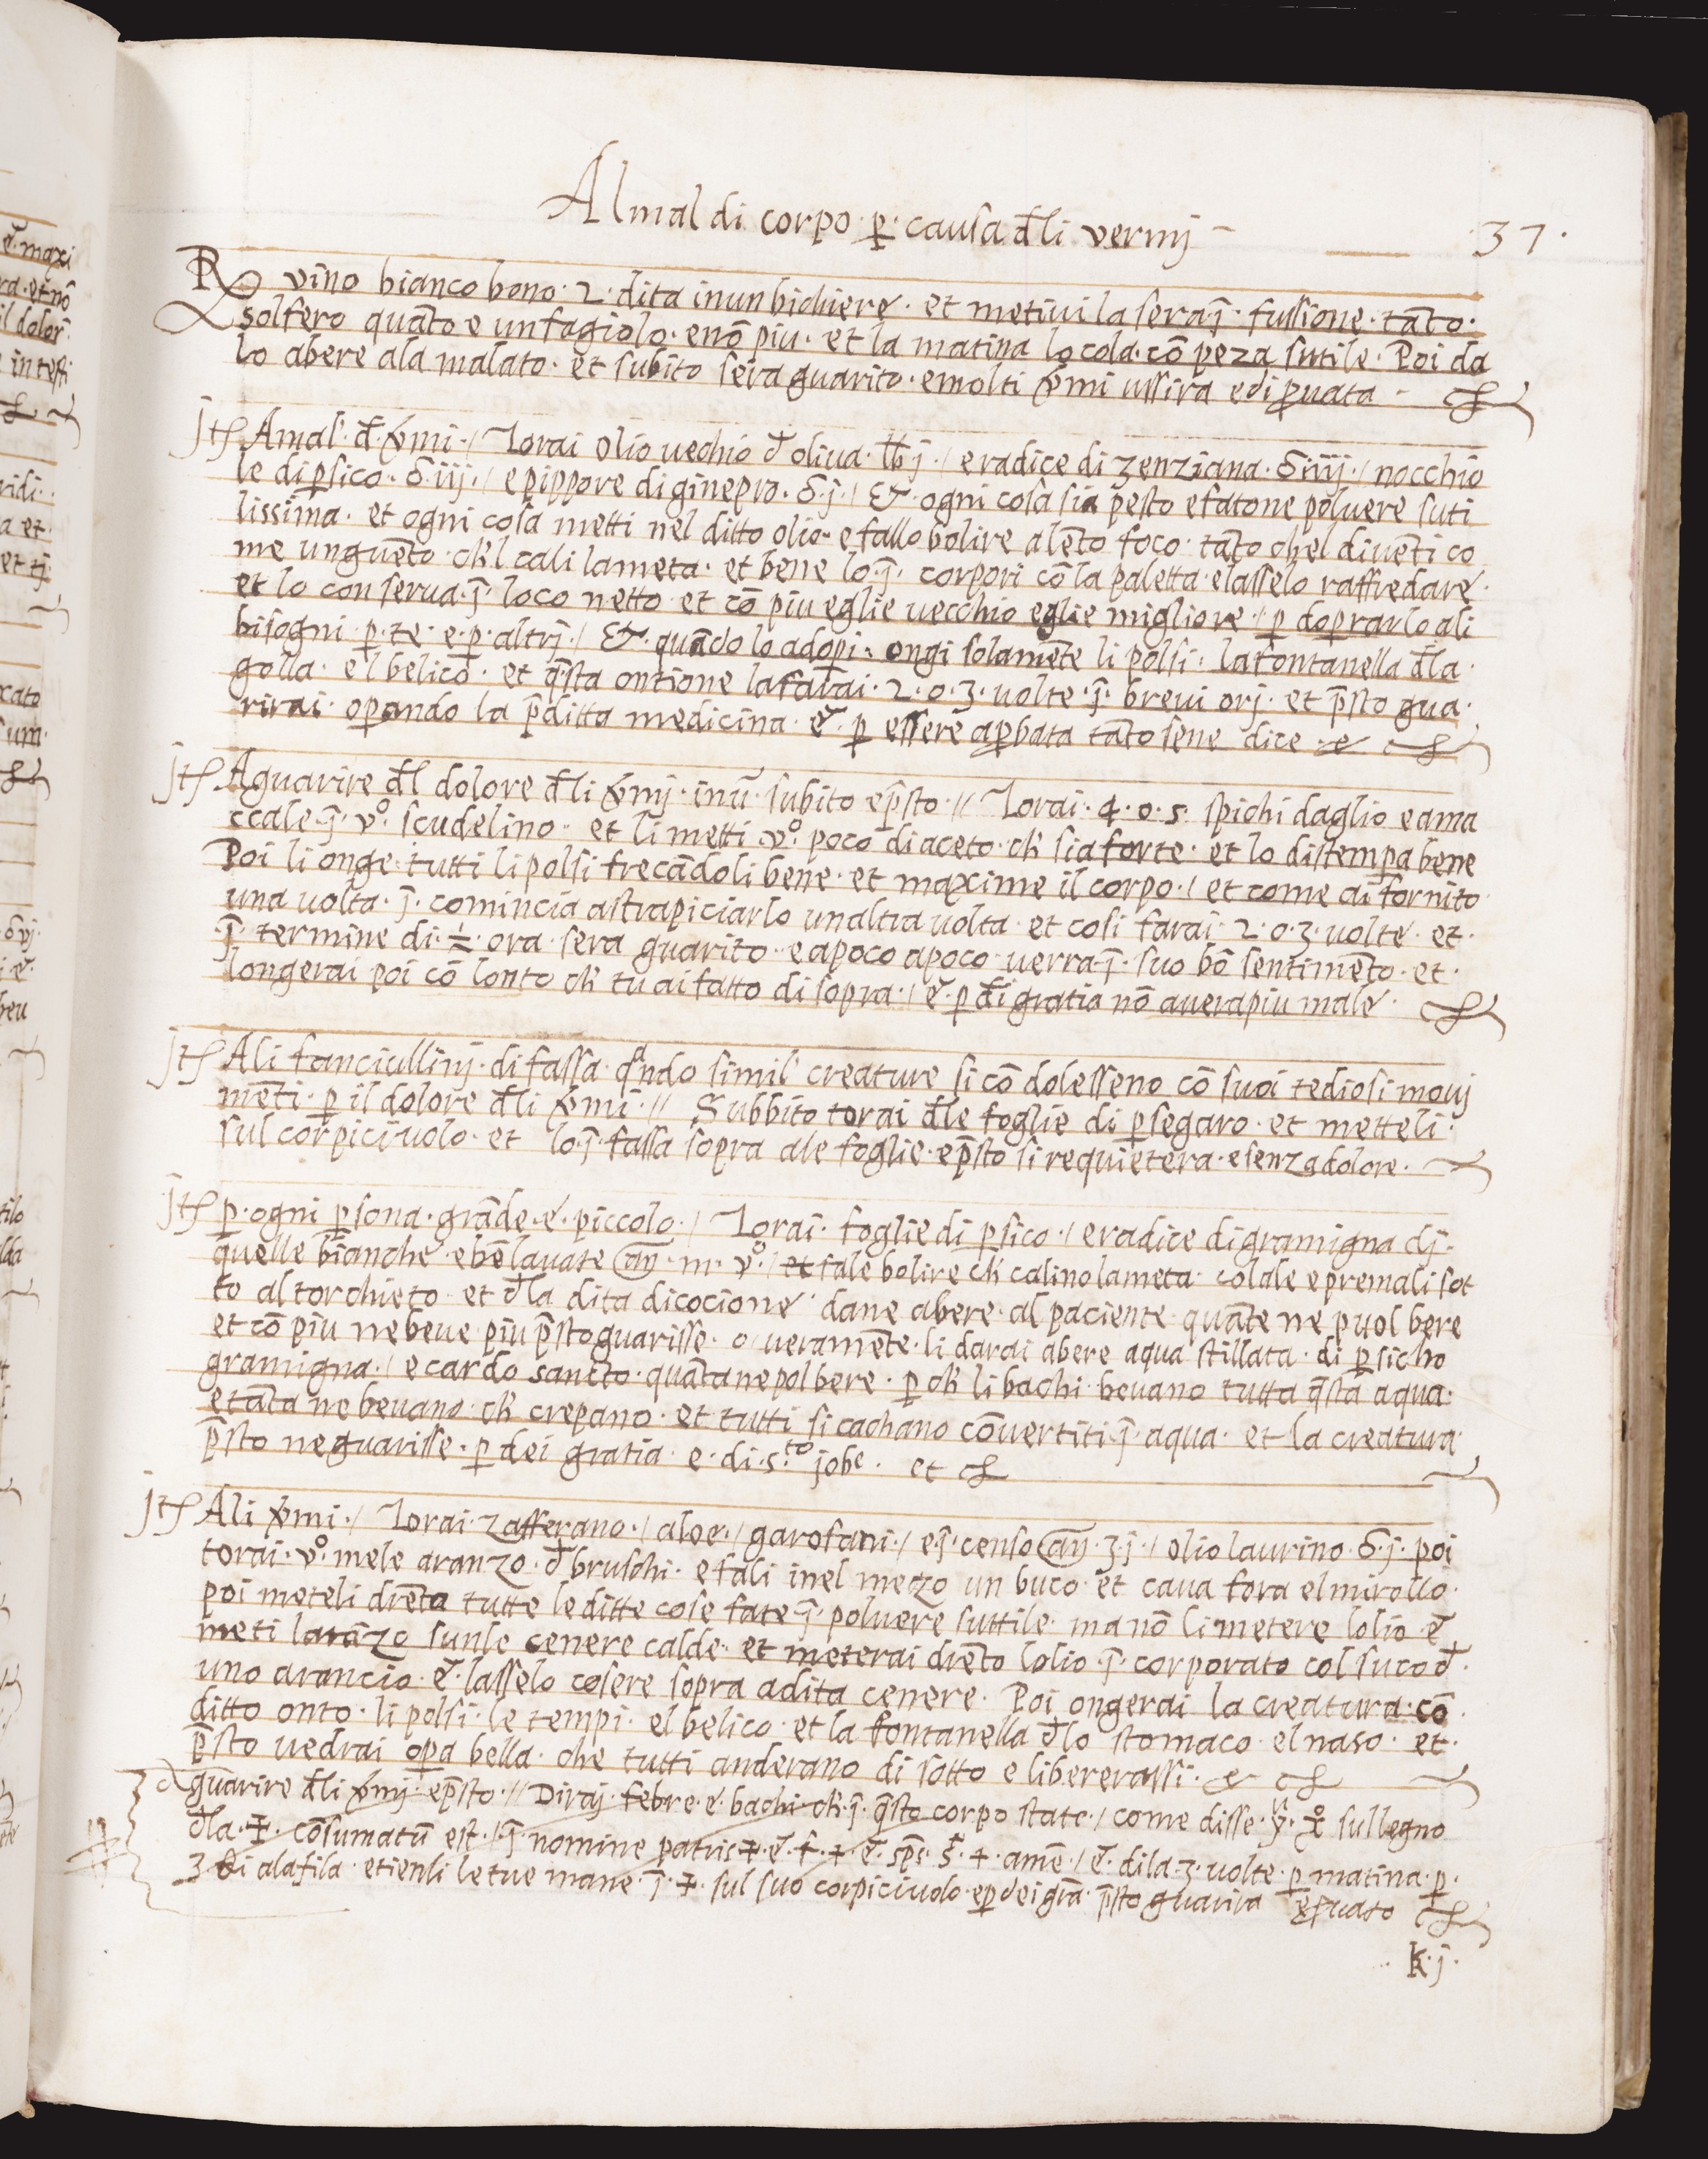 Al mal di corpo · p̱ · causa đli vermj
· 37 ·
℞ vino bianco bono · 2 · dita in un bichiere · et metivi la sera · ĩ · fussione · tãto ·
solfero quãto e un fagiolo · e nõ piu · et la matina lo cola · cõ peza sutile · Poi da
lo abere ala malato · et subito sera guarito · e molti v̄mi ussira e di p̱uata
Jt Amal · đ · v̄mi · / Torai olio vechio đ oliva · ℔ j · / e radice di zenziana · δ · iiij · / nocchio
le di p̱sico · δ · iij · / e pippore di ginepro · δ · j · / Et ogni cosa sia pesto e fatone poluere suti
lissima · et ogni cosa metti nel ditto olio · e fallo bolire a lẽto foco · tãto chel divẽti co
me unguẽto · ch'l cali la meta · et bene lo · ĩ · corpori cõ la paletta · e lasselo raffredare ·
et lo conserva · ĩ · loco netto · et cõ piu eglie vecchio eglie migliore · / p̱ doprarlo ali
bisogni · p̱ · te · e · p̱ · altrj · / Et · quãdo lo adop̱i · ongi solamẽte li polsi · la fontanella đla ·
golla · el belico · et q̃sta ontione la farai · 2 · o · 3 · uolte · ĩ · brevi orj · et p̃sto gua ·
rirai · op̱ando la p̃ditta medicina · e · p̱ essere ap̱bata tãto sene dice
Jt A guarire đl dolore đli v̄mj · inũ · subito e p̃sto · // Torai · 4 · o · 5 · spichi daglio e ama
ccale · ĩ · vº · scudelino · et li metti · vº · poco di aceto · ch' sia forte · et lo distemp̱a bene
Poi li onge · tutti li polsi frecãdoli bene · et maxime il corpo · / et come ai fornito
una uolta · ĩ · comincia a strapiciarlo un altra uolta · et cosi farai · 2 · o · 3 · uolte · et ·
ĩ · termine di · ½ · ora · sera guarito · e a poco a poco · uerra · ĩ · suo bõ sentimẽto · et ·
longerai poi cõ lonto ch' tu ai fatto di sopra · / e · p̱ di gratia nõ avera piu male ·
Jt Ali fanciullinj · di fassa · q̃ndo simil' creature si cõ dolesseno cõ suoi tediosi movj
mẽti · p̱ il dolore đli v̄mi · // Subbito torai đle foglie di p̱segaro · et metteli ·
sul corpicivolo · et lo · ĩ · fassa sopra ale foglie · e p̃sto si requietera · e senza dolore ·
Jt p̱ · ogni p̱sona · grãde · e · piccolo · / Torai · foglie di p̱sico · / e radice di gramigna dj ·
quelle bianche · e bẽ lavate añ · m · vº · / et fale bolire ch' calino la meta · colale e premali sot
to al torchieto · et đla dita dicocione · dane abere · al paciente · quãte ne puol bere
et cõ piu ne beve · piu p̃sto guarisse · o / ueramẽte · li darai abere aqua stillata · di p̱sicho
gramigna · / e cardo sancto · quãta ne pol bere · p̱ ch' li bachi bevano tutta q̃sta aqua ·
e tãta ne bevano · ch' crepano · et tutti si cachano cõvertiti · ĩ · aqua · et la creatura
p̃sto ne guarisse · p̱ dei gratia · e · di · s.to jobe · et
Jt Ali v̄mi · / Torai · zafferano · / aloe · / garofani · / e ĩ · censo añ · ʒ · j · / olio laurino · δ · j · poi
torai · vº · mele aranzo · đ bruschi · e fali inel mezo un buco · et cava fora el mirollo ·
poi meteli drẽto tutte le ditte cose fate · ĩ · poluere suttile · ma nõ li metere lolio · e
meti larãzo sunle cenere calde · et meterai drẽto lolio · ĩ · corporato col suco đ ·
uno arancio · e · lasselo cosere sopra a dita cenere · Poi ongerai la creatura · cõ ·
ditto onto · li polsi · le tempi · el belico · et la fontanella đlo stomaco · el naso · et ·
p̃sto uedrai op̱a bella · che tutti anderano di sotto e libererassi ·
guarire đli v̄mj · e p̃sto · // Diraj · febre · e · bachi · ch' · ĩ · q̃sto corpo state · / come disse · sul legno
đla · ✝ · cõsumatũ est · / ĩ · nomine patris ✝ · e · f · ✝ · e · sp̃s · s̃ · ✝ · amẽ · / e · dila · 3 · uolte · p̱ matina · p̱ ·
3 di ala fila · e tienli le tue mane · ĩ · ✝ · sul suo corpicivolo · e p̱ dei gr̃a p̃sto guarira
· k · j ·